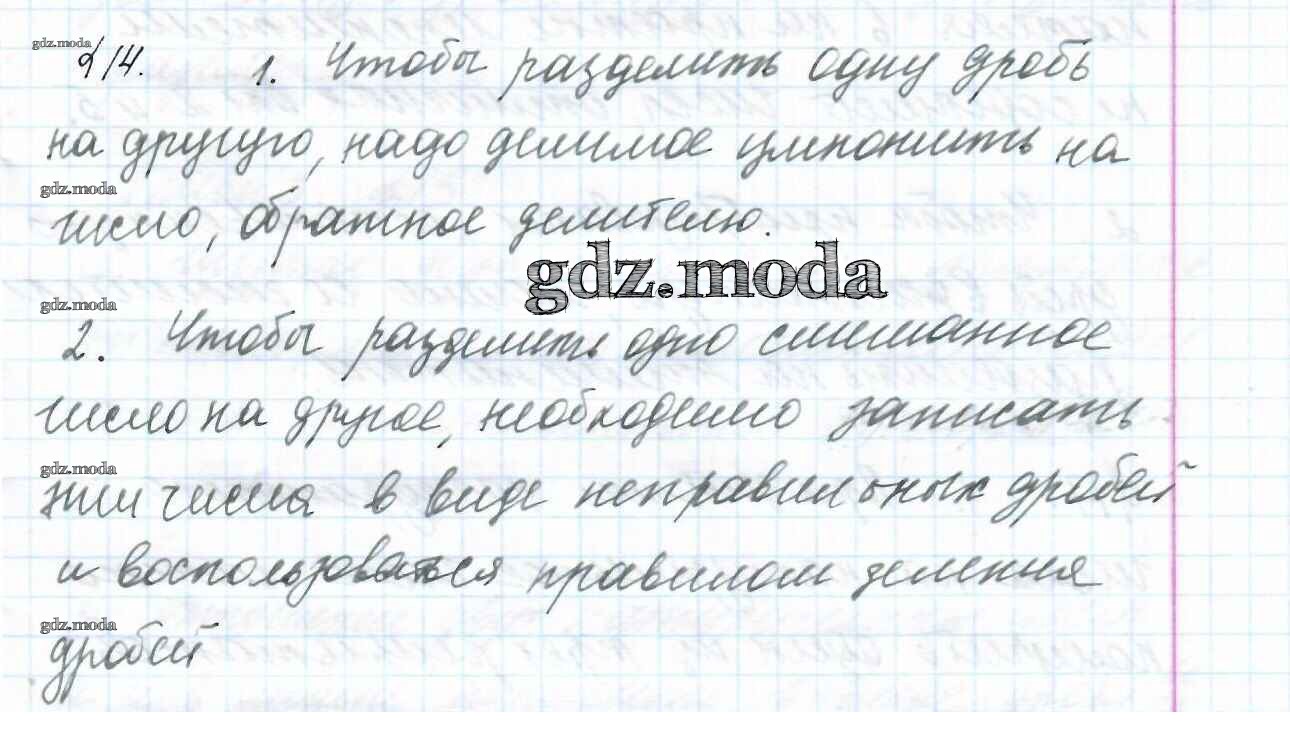 gdz.moda
§14. 1. Чтобы разделить одну дробь
на другую, надо делимое умножить на
gdz.moda
число, обратное делителю.
gdz.moda
gdz.moda
2. Чтобы разделить одно смешанное
число на другое, необходимо записать
gdz.moda
эти числа в виде неправильных дробей
и воспользоваться правилом деления
gdz.moda
дробей